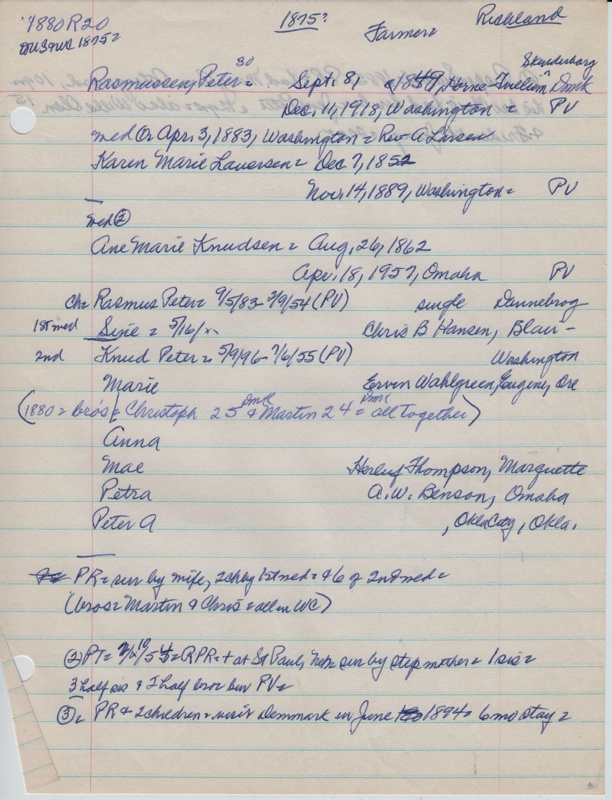 1880 R20 1875? Richland
in 1875= Farmer=
30 Skanderborg
Rasmussen, Peter= Sept. 8, 1849, Horne- Dmk
Dec. 11, 1918, Washington= PV
med ① Apr. 3, 1883, Washington= Rev A Larsen
Karen Marie Laversen= Dec. 7, 1852
Nov. 14, 1889, Washington= PV
med ②
Ane Marie Knudsen= Aug. 26, 1862
Apr. 18, 1957, Omaha PV
ch= Rasmus Peter= 9/5/83- 2/9/54 (PV) single Dannebrog
1st med Sine = 5/16/.. Chris B Hansen, Blair-
2nd Knud Peter= 5/9/96- 7/6/55 (PV) Washington
Marie Ervin Wahlgreen, Eugene, Ore
(1880= bros= Christoph 25 Dmk & Martin 24= Dmk all together)
Anna
Mae Herluf Thompson, Marquette
Petra A.W. Benson, Omaha
Peter A , Okla City, Okla.
PR= sur by wife, 2 ch by 1st med= & 6 of 2nd med=
(bros= Martin & Chris= all in WC)
② PT= 54= RPR= + at St Paul, Neb= sur by step mother= 1 sis=
3 half sis & 2 half bros= bur PV=
③= PR & 2 children= visit Denmark in June 1894= 6 mo stay=